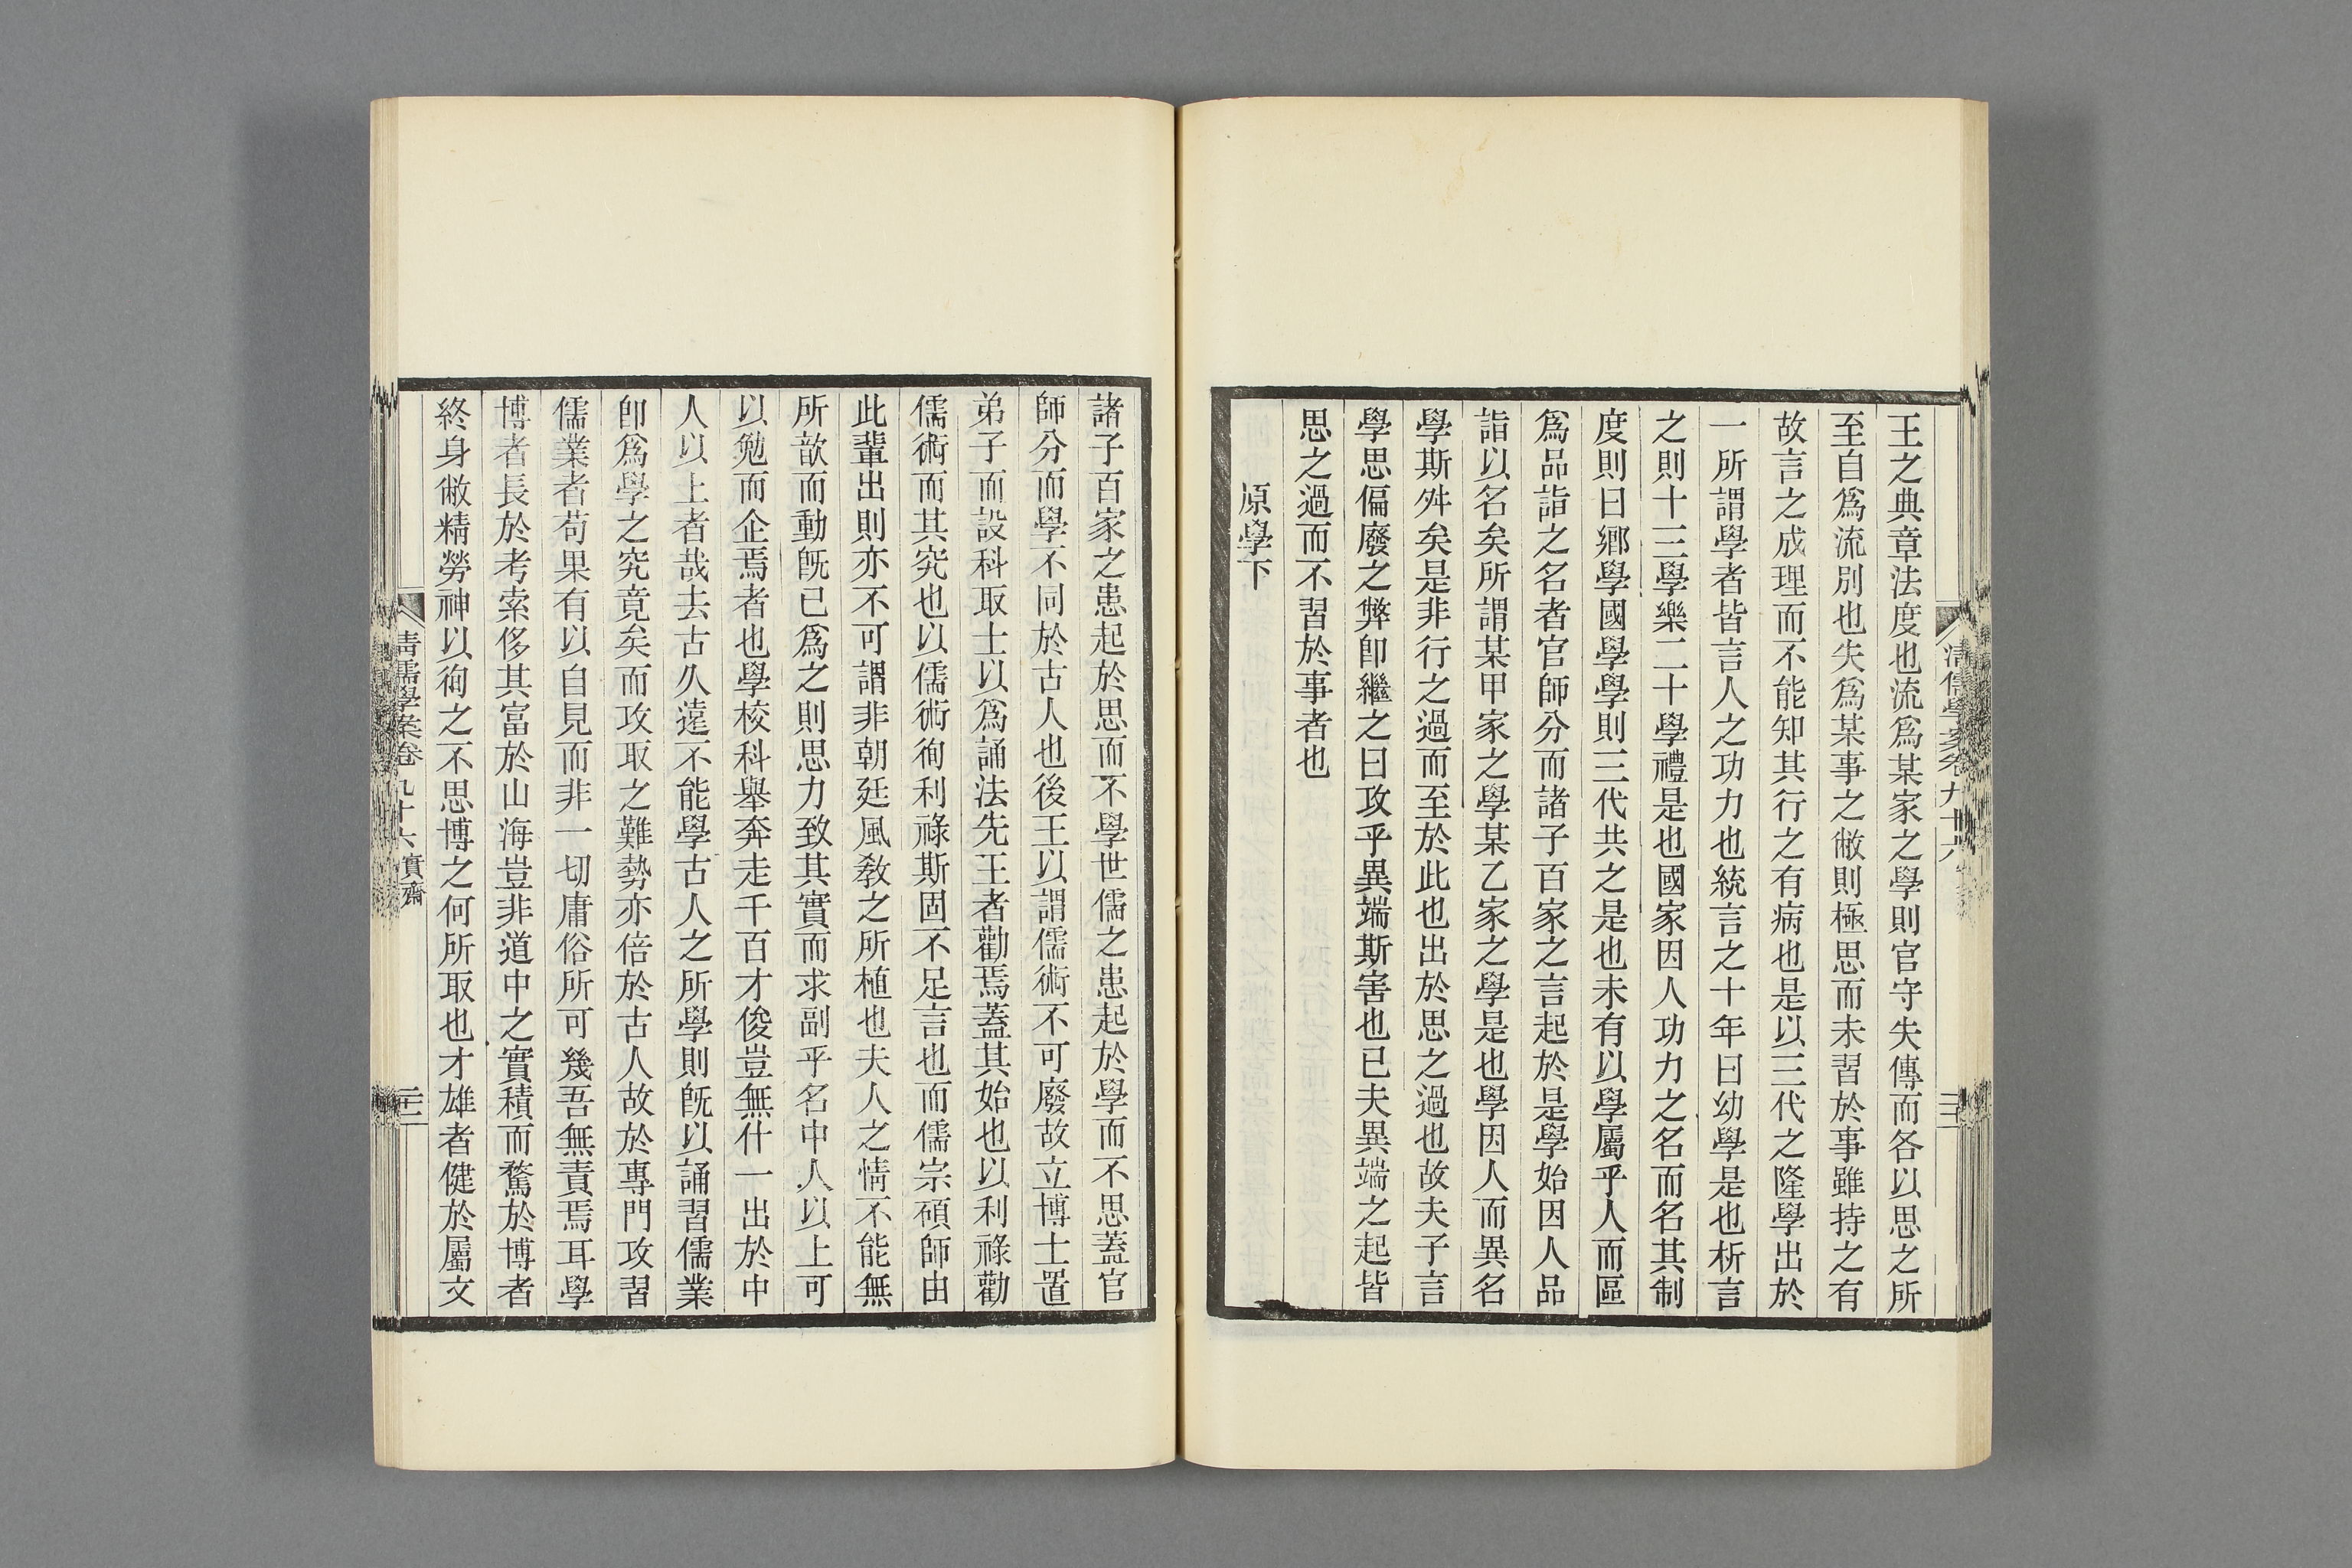 王之典章法度也流爲某家之學則官守失傳而各以思之所
至自爲流別也失爲某事之敝則極思而未習於事雖持之有
故言之成理而不能知其行之有病也是以三代之隆學出於
一所謂學者皆言人之功力也統言之十年曰幼學是也析言
之則十三學樂二十學禮是也國家因人功力之名而名其制
度則曰鄉學國學學則三代共之是也未有以學屬乎人而區
爲品詣之名者官師分而諸子百家之言起於是學始因人品
詣以名矣所謂某甲家之學某乙家之學是也學因人而異名
學斯舛矣是非行之過而至於此也出於思之過也故夫子言
學思偏廢之弊卽繼之曰攻乎異端斯害也已夫異端之起皆
思之過而不習於事者也
原學下
諸子百家之患起於思而不學世儒之患起於學而不思蓋官
師分而學不同於古人也後王以謂儒術不可廢故立博士置
弟子而設科取士以爲誦法先王者勸焉蓋其始也以利祿勸
儒術而其究也以儒術徇利祿斯固不足言也而儒宗碩師由
此輩出則亦不可謂非朝廷風敎之所植也夫人之情不能無
所歆而動旣已爲之則思力致其實而求副乎名中人以上可
以勉而企焉者也學校科舉奔走千百才俊豈無什一出於中
人以上者哉去古久遠不能學古人之所學則旣以誦習儒業
卽爲學之究竟矣而攻取之難勢亦倍於古人故於專門攻習
儒業者苟果有以自見而非一切庸俗所可幾吾無責焉耳學
博者長於考索侈其富於山海豈非道中之實積而騖於博者
終身敝精勞神以徇之不思博之何所取也才雄者健於屬文
清儒學案卷九十六 實齋